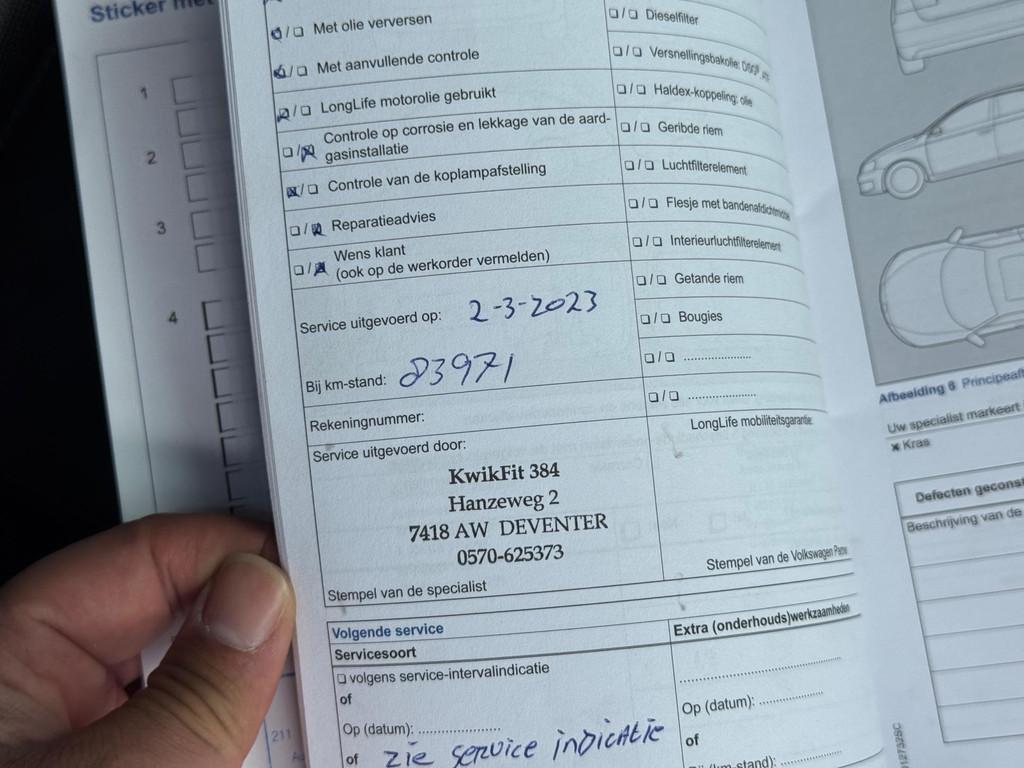 Sticker
1
2
3
4
211
☑/☐ Met olie verversen
☑/☐ Met aanvullende controle
☑/☐ LongLife motorolie gebruikt
☐/☒ Controle op corrosie en lekkage van de aard-
gasinstallatie
☒/☐ Controle van de koplampafstelling
☐/☒ Reparatieadvies
☐/☒ Wens klant
(ook op de werkorder vermelden)
Service uitgevoerd op: 2-3-2023
Bij km-stand: 83971
Rekeningnummer:
Service uitgevoerd door:
KwikFit 384
Hanzeweg 2
7418 AW DEVENTER
0570-625373
Stempel van de specialist
☐/☐ Dieselfilter
☐/☐ Versnellingsbakolie:
☐/☐ Haldex-koppeling: olie
☐/☐ Geribde riem
☐/☐ Luchtfilterelement
☐/☐ Flesje met bandenafdichtmiddel
☐/☐ Interieurluchtfilterelement
☐/☐ Getande riem
☐/☐ Bougies
☐/☐ ....................
☐/☐ ....................
LongLife mobiliteitsgarantie:
Stempel van de Volkswagen
Volgende service
Servicesoort
☐ volgens service-intervalindicatie
of
Op (datum): ....................
of zie service indicatie
Extra (onderhouds)werkzaamheden
........................................
Op (datum): ................
of
Afbeelding 6
Uw specialist markeert
✖ Kras
Defecten
Beschrijving van de